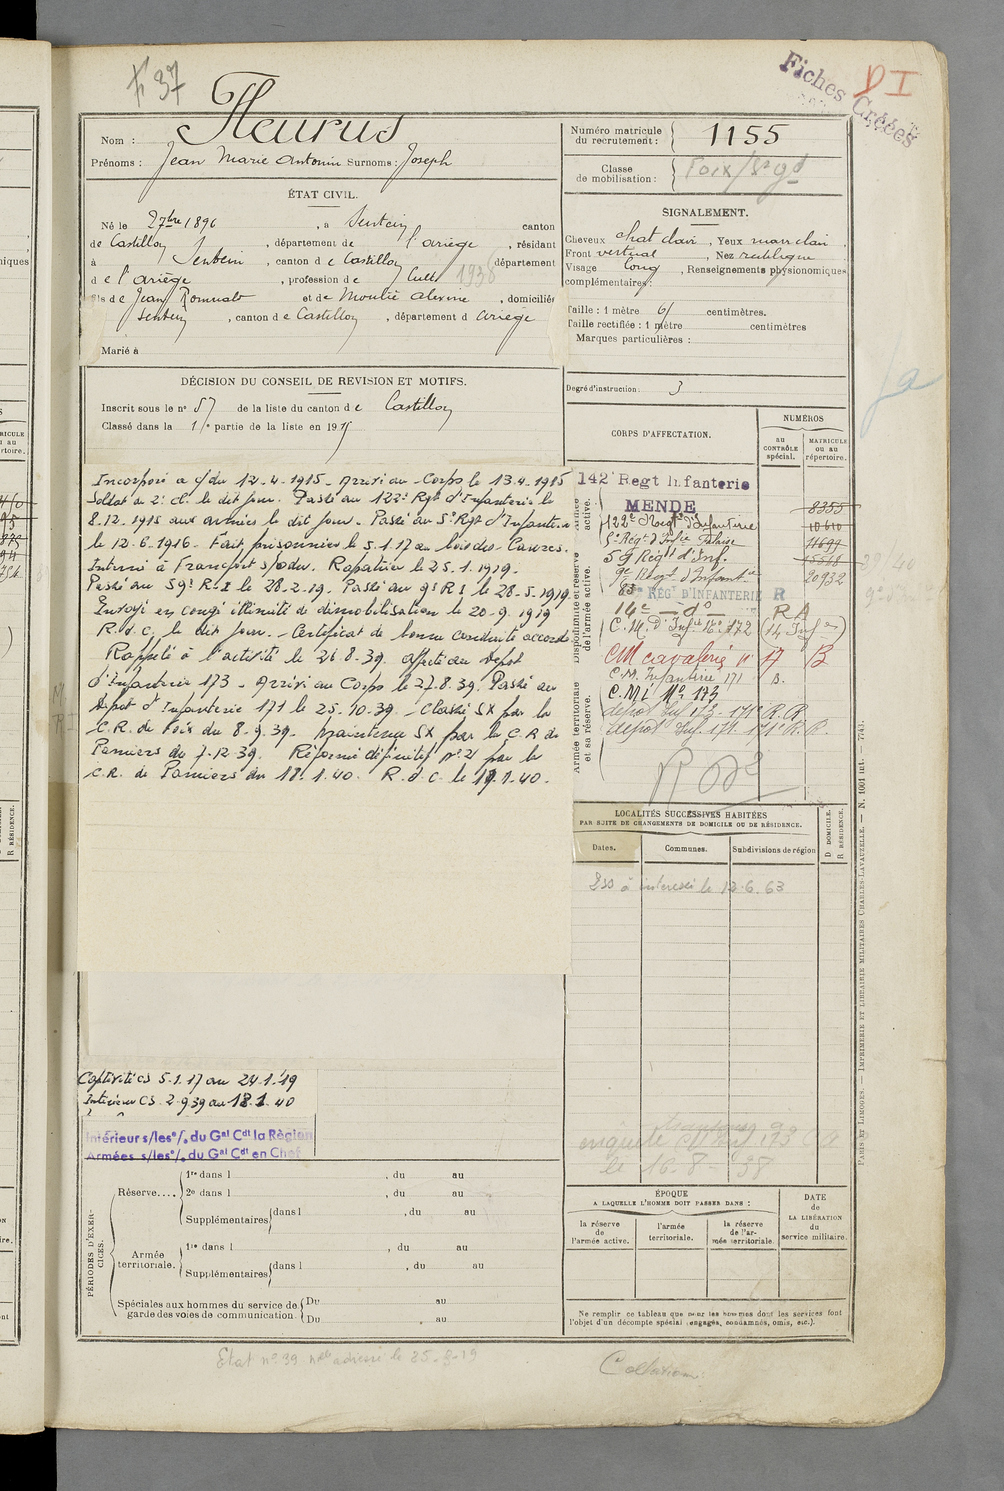 F 37
Fiches Créées
D I
Nom : Fleurus
Prénoms : Jean Marie Antonin Surnoms : Joseph
Numéro matricule du recrutement : 1155
Classe de mobilisation : Foix/St Gd
ÉTAT CIVIL.
Né le 2 7bre 1896, à Sentein canton
de Castillon, département de l'ariège, résidant
à Sentein, canton de Castillon département
de l'ariège, profession de Cult 1938
fils de Jean Romuald et de domiciliés
Sentein, canton de Castillon, département d ariège
Marié à
SIGNALEMENT.
Cheveux chat clair, Yeux marr clair
Front vertical, Nez rectiligne
Visage long, Renseignements physionomiques
complémentaires :
Taille : 1 mètre 61 centimètres.
Taille rectifiée : 1 mètre centimètres
Marques particulières :
Degré d'instruction : 3
DÉCISION DU CONSEIL DE REVISION ET MOTIFS.
Inscrit sous le n° 57 de la liste du canton de Castillon
Classé dans la 1re partie de la liste en 1915
CORPS D'AFFECTATION.
NUMÉROS
AU CONTRÔLE spécial.
MATRICULE ou au répertoire.
Incorporé à c/ du 12-4-1915 - Arrivé au Corps le 13.4.1915
Soldat de 2e Cl. le dit jour. Passé au 122e Rgt d'Infanterie le
8.12.1915 aux armées le dit jour - Passé au 5e Rgt d'Infanterie
le 12.6.1916 - Fait prisonnier le 5.1.17 au bois des Caures.
Interné à Francfort s/oder. Rapatrié le 25.1.1919.
Passé au 59e R.I le 28-2-19. Passé au 9e R I le 28-5-1919
Envoyé en congé illimité de démobilisation le 20-9-1919
R.d.C. le dit jour. - Certificat de bonne conduite accordé
Rappelé à l'activité le 26-8-39. affecté au Dépôt
d'Infanterie 173 - Arrivé au Corps le 27.8.39. Passé au
dépôt d'Infanterie 171 le 25.10.39 - Classé SX par la
C.R. de Foix du 8-9.39. Maintenu SX par la C.R de
Pamiers du 7-12-39. Réformé définitif n° 2 par la
C.R. de Pamiers du 18.1.40. R.d.C. le 18.1.40.
Disponibilité et réserve de l'armée active.
Armée active.
Armée territoriale et sa réserve.
142e Regt Infanterie
MENDE 8355
122e Régt d'Infanterie 10610
5e Régt d'Infie Falaise 11697
59 Régt d'Inf. 15568
9e Régt d'Infantie 20932
83me RÉGt D'INFANTERIE R
14e - do - R A
C.M. D'Infie 16e 172 (14 Infie)
CM cavalerie n° 17 B
C.M. Infanterie 171 B.
C.M.I N° 173
dépôt Inf 173 - 171e R.R
dépôt Inf. 171. 171e R.R.
LOCALITÉS SUCCESSIVES HABITÉES
PAR SUITE DE CHANGEMENTS DE DOMICILE OU DE RÉSIDENCE.
Dates. Communes. Subdivisions de région
D. DOMICILE.
R. RÉSIDENCE.
ESS à intéressé le 12.6.63
Captivité CS 5.1.17 au 24.1.19
Intérieur CS. 2.9.39 au 18.1.40
Intérieur s/les o/. du Gal Cdt la Région
Armées s/les o/. du Gal Cdt en Chef
le 16-8-38
PÉRIODES D'EXERCICES.
Réserve....
1re dans l , du au
2e dans l , du au
Supplémentaires dans l , du au
Armée territoriale.
1re dans l , du au
Supplémentaires dans l , du au
Spéciales aux hommes du service de garde des voies de communication.
Du au
Du au
ÉPOQUE
A LAQUELLE L'HOMME DOIT PASSER DANS :
la réserve de l'armée active.
l'armée territoriale.
la réserve de l'armée territoriale.
DATE de LA LIBÉRATION du service militaire.
Ne remplir ce tableau que pour les hommes dont les services font
l'objet d'un décompte spécial (engagés, condamnés, omis, etc.).
PARIS ET LIMOGES. — IMPRIMERIE ET LIBRAIRIE MILITAIRES CHARLES-LAVAUZELLE. — N. 1001 int. — 7743.
Etat n° 39 adressé le 25-8-19
Collationné